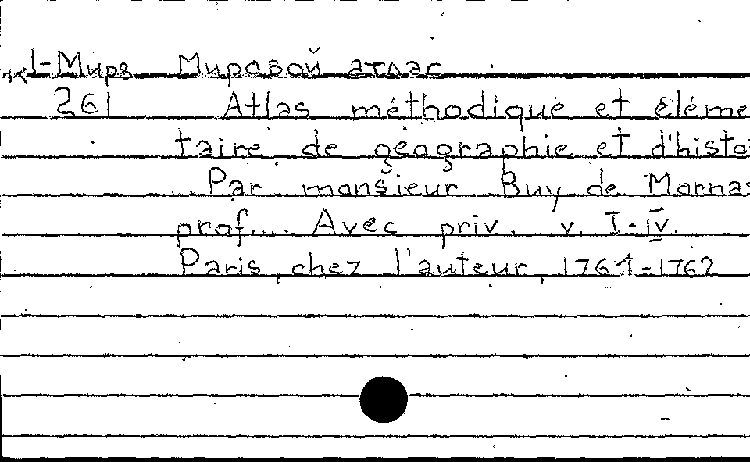 1-Мирв Мировой атлас
261 Atlas méthodique et éléme
taire de géographie et d'histo
Par monsieur Buy de Mornas
prof.... Avec priv. v. I-IV.
Paris, chez l'auteur, 1761-1762